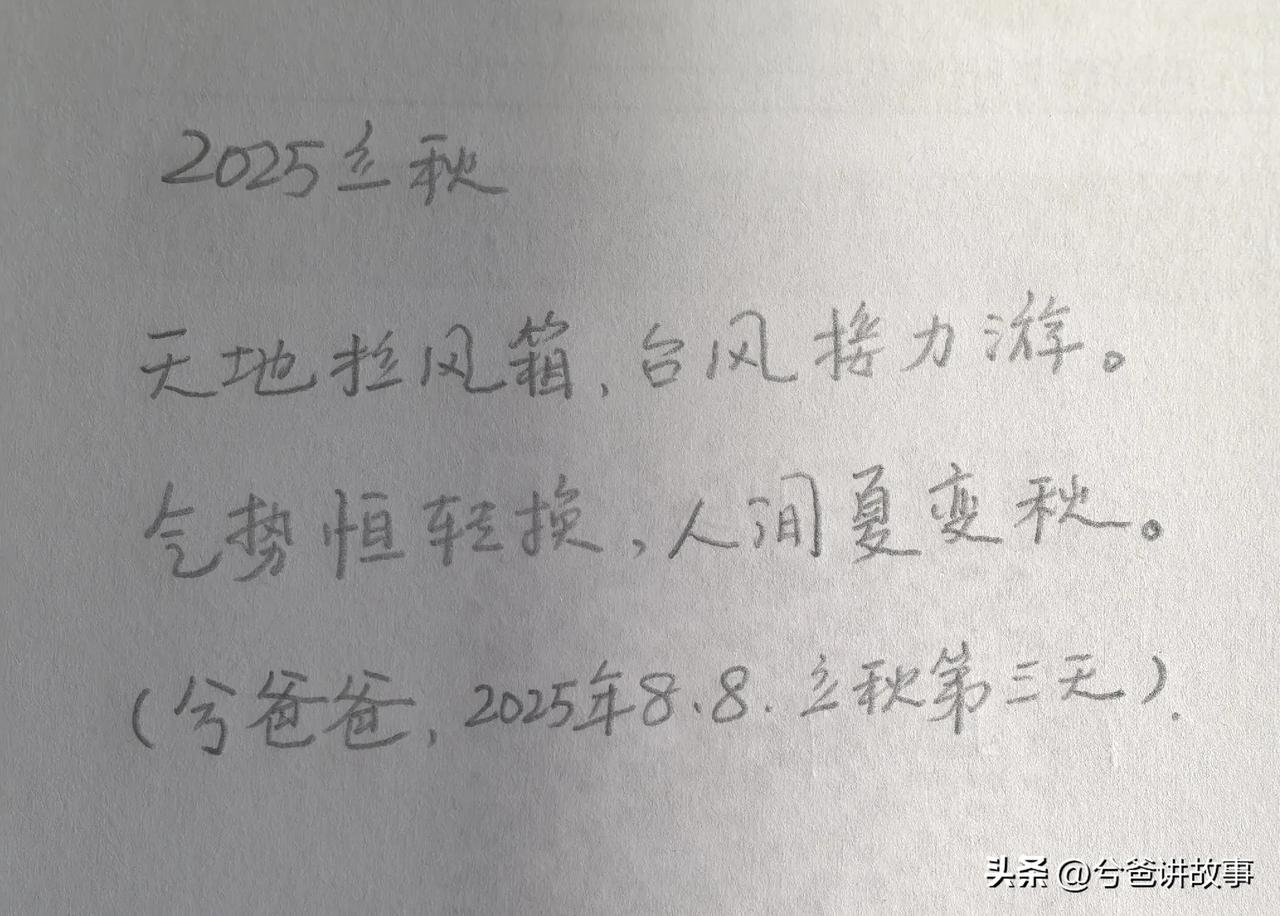 2025立秋
天地拉风箱,台风接力游。
气势恒转换,人间夏变秋。
(兮爸爸,2025年8.8.立秋第三天).
头条 @兮爸讲故事